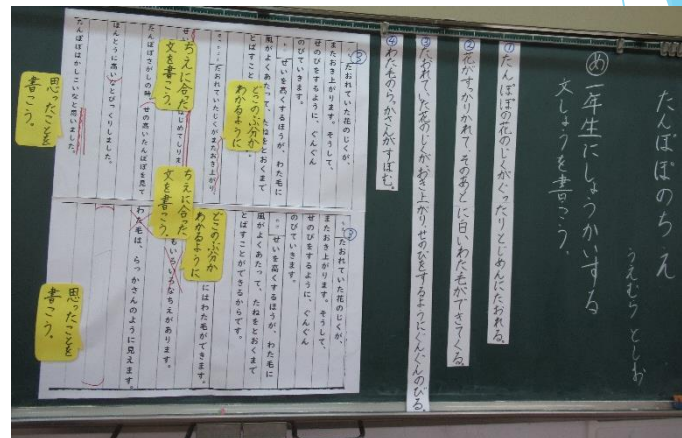 たんぽぽのちえ
うえむら としお
め 一年生にしょうかいする
文しょうを書こう。
①たんぽぽの花のじくがぐったりとじめんにたおれる。
②花がすっかりかれて、そのあとに白いわた毛ができてくる。
③たおれていた花のじくがおき上がり、せのびをするようにぐんぐんのびる。
④わた毛のらっかさんがすぼむ。
③
たおれていた花のじくが、
またおき上がります。そうして、
せのびをするように、ぐんぐん
のびていきます。
せいを高くするほうが、わた毛に
風がよくあたって、たねをとおくまで
とばすこと
どこのぶ分か
わかるように
たおれていたじくがまたおき上がり、
ちえに合った
文を書こう。
はじめてしりま
たんぽぽさがしの時、せの高いたんぽぽを見て
ほんとうに高いなとびっくりしました。
たんぽぽはかしこいなと思いました。
思ったことを
書こう。
③
たおれていた花のじくが、
またおき上がります。そうして、
せのびをするように、ぐんぐん
のびていきます。
せいを高くするほうが、わた毛に
風がよくあたって、たねをとおくまで
とばすことができるからです。
どこのぶ分か
わかるように
にはわた毛ができます。
ちえに合った
文を書こう。
もいろいろなちえがあります。
わた毛は、らっかさんのように見えます。
思ったことを
書こう。